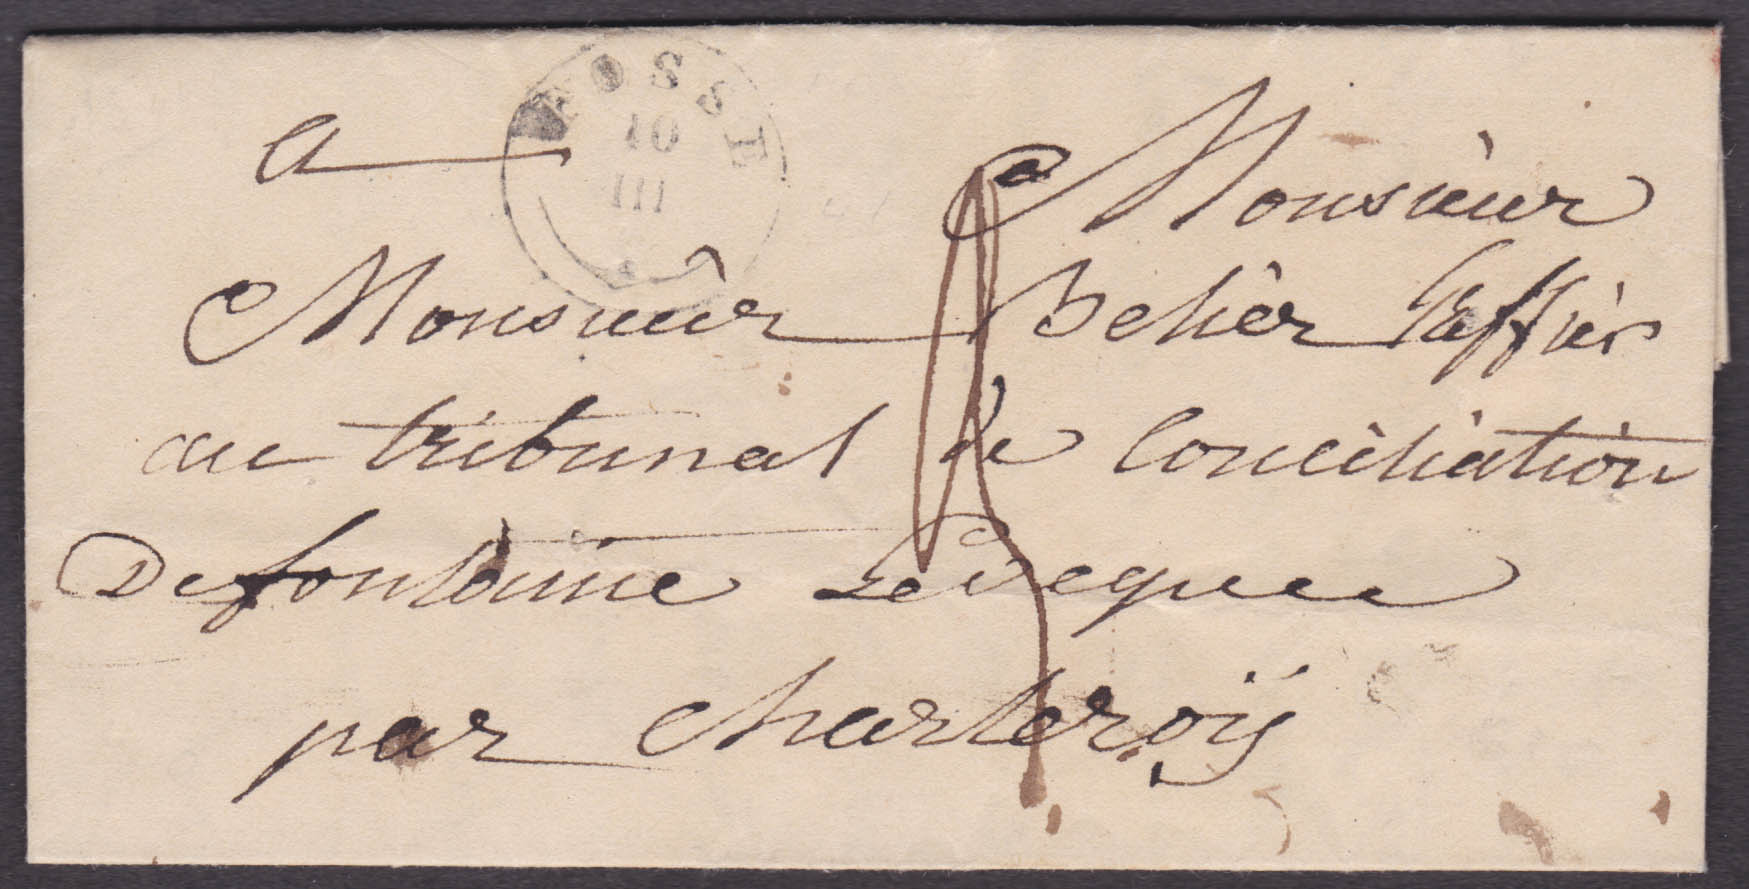 FOSSE
10
III
a Monsieur
Monsieur Behèr Greffier
au tribunal de Conciliation
De fontaine Leveque
par charleroÿ